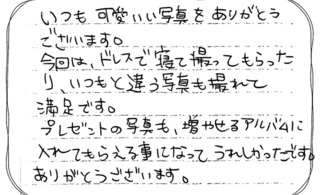 いつも可愛いい写真をありがとう
ございます。
今回は、ドレスで寝て撮ってもらった
り、いつもと違う写真も撮れて
満足です。
プレゼントの写真も、増やせるアルバムに
入れてもらえる事になってうれしかったです。
ありがとうございます。